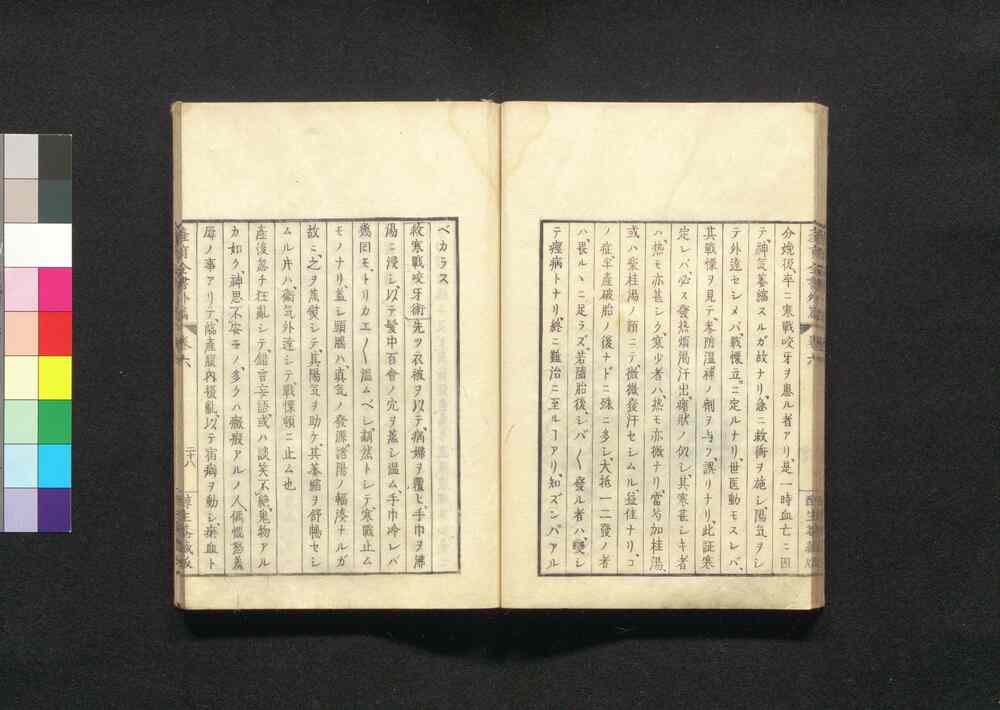 分娩後、卒ニ寒戰咬牙ヲ患ル者アリ、是一時血亡ニ因
テ、神氣萎縮スルガ故ナリ、急ニ救術ヲ施シ、陽氣ヲシ
テ外達セシメバ、戰慄立ニ定ルナリ、世医動モスレバ、
其戰慄ヲ見テ、柴防温補ノ剤ヲ与フ、誤リナリ、此証寒
定レバ必ス發熱煩渇汗出、瘧狀ノ似シ、其寒甚シキ者
ハ、熱モ亦甚シク、寒少者ハ熱モ亦微ナリ、當芍加桂湯、
或ハ柴桂湯ノ類ニテ、微微發汗セシムル益佳ナリ、コ
ノ症半産破胎ノ後ナドニ殊ニ多シ、大抵一二發ノ者
ハ、畏ルヽニ足ラズ、若墮胎後、シバ〱發ル者ハ、變シ
テ瘧病トナリ、終ニ難治ニ至ルヿアリ、知ズンバアル
ベカラス
救寒戰咬牙術 先ツ衣被ヲ以テ、病婦ヲ覆ヒ、手巾ヲ沸
湯ニ浸シ、以テ髪中百會ノ穴ヲ蒸シ温ム、手巾冷レバ
幾囘モ、トリカエ〱温ムベシ、翕然トシテ寒戰止ム
モノナリ、蓋シ頭腦ハ、真氣ノ發源、諸陽ノ輻湊ナルガ
故ニ、之ヲ蒸熨シテ、其陽氣ヲ助ケ、其萎縮ヲ舒暢セシ
ムル片ハ、衛氣外達シテ、戰慄頓ニ止ム也
産後忽チ狂亂シテ、錯言妄語、或ハ談笑不絶、鬼物アル
カ如ク、神思不安モノ、多クハ癥瘕アルノ人、低憊愁蓋
辱ノ事アリテ、臨産腹内擾亂、以テ宿痾ヲ動シ、瘀血ト
産育全書外篇 卷六 二十八